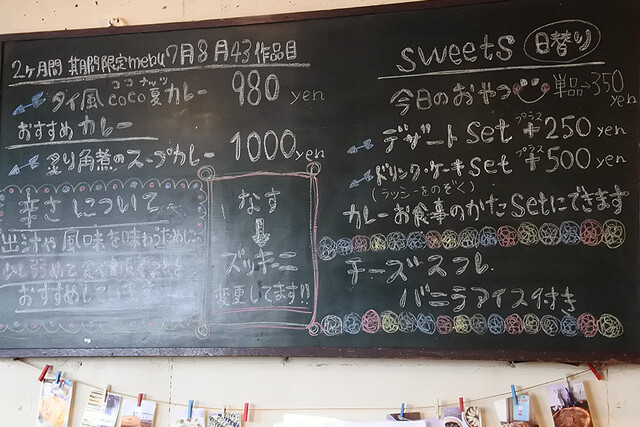 2ヶ月間 期間限定menu 7月8月 43作品目
ココナッツ
タイ風coco夏カレー 980 yen
おすすめカレー
炙り角煮のスープカレー 1000 yen
辛さについて
出汁や風味を味わうために
少し弱めで
おすすめして
なす
↓
ズッキーニ
変更してます!!
sweets 日替り
今日のおやつ 単品 350 yen
デザートset プラス +250 yen
ドリンク・ケーキset プラス +500 yen
(ラッシーをのぞく)
カレーお食事のかたsetにできます
チーズスフレ
バニラアイス付き